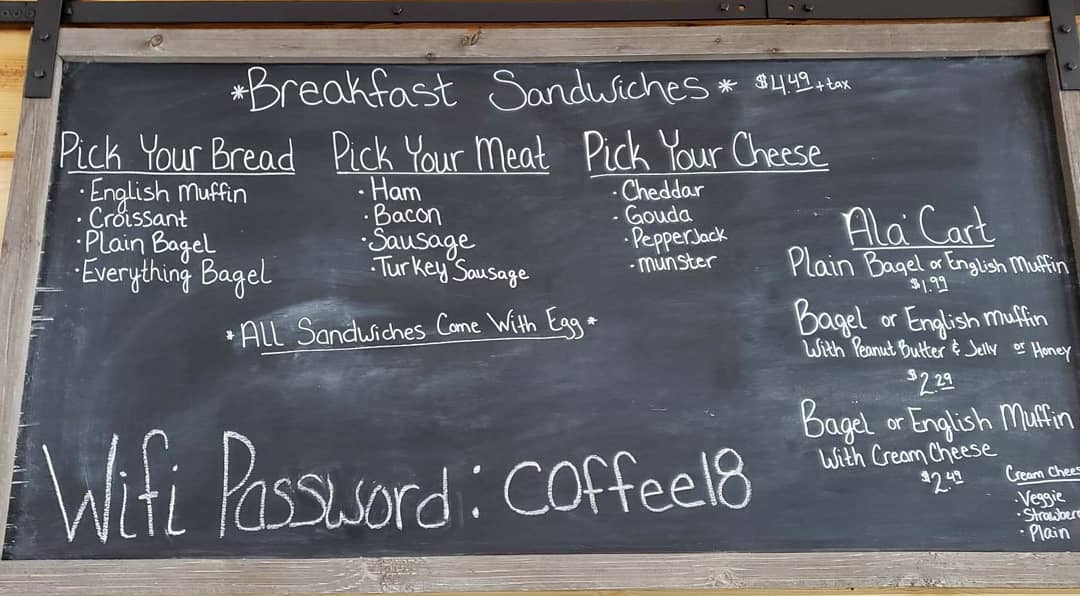 *Breakfast Sandwiches* $4.49 + tax
Pick Your Bread
· English Muffin
· Croissant
· Plain Bagel
· Everything Bagel
Pick Your Meat
· Ham
· Bacon
· Sausage
· Turkey Sausage
Pick Your Cheese
· Cheddar
· Gouda
· PepperJack
· munster
*All Sandwiches Come With Egg*
Wifi Password: coffee18
Ala' Cart
Plain Bagel or English Muffin
$1.99
Bagel or English muffin
With Peanut Butter & Jelly or Honey
$2.29
Bagel or English Muffin
With Cream Cheese
$2.49
Cream Chees
· Veggie
· Strawber
· Plain